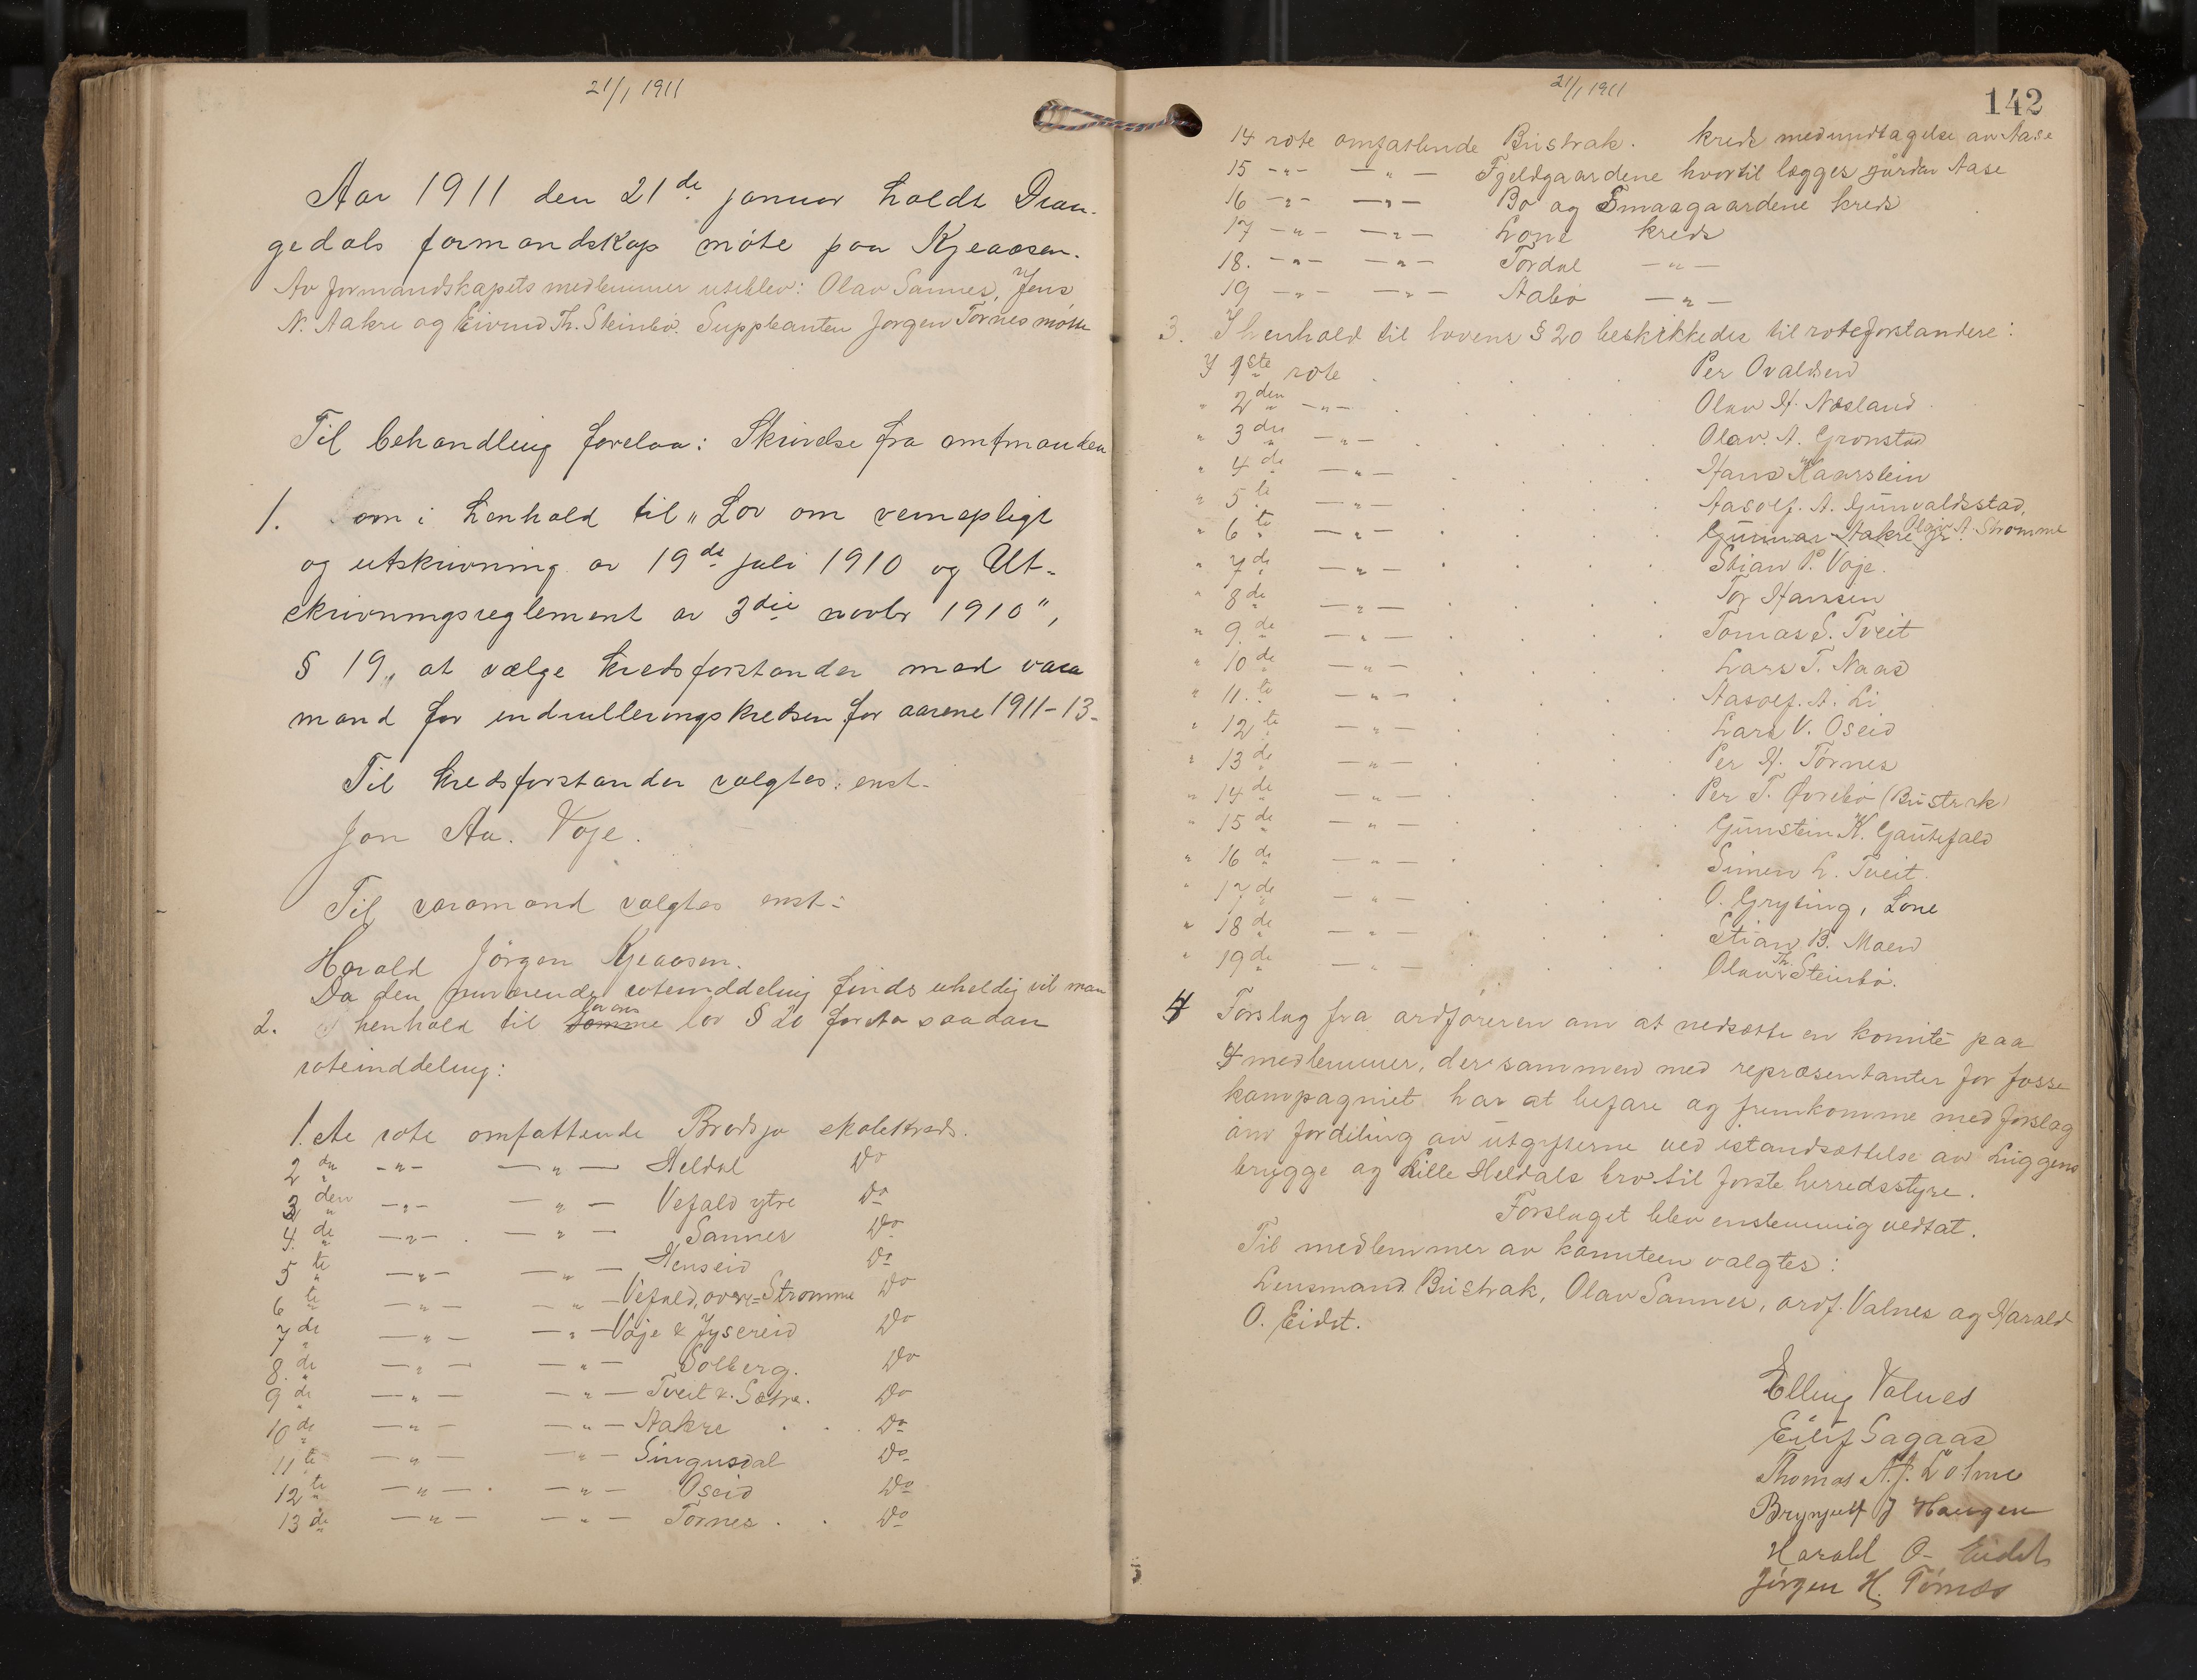 21/1 1911
Aar 1911 den 21de januar holdt Dran-
gedals formandskap møte paa Kjeaasen.
Av formandskapets medlemmer uteblev: Olav Sannes, Jens
N. Aakre og Eivind Th. Steinbø. Suppleanten Jørgen Tørnes møtte
Til behandling forelaa: Skrivelse fra amtmanden
1. om i henhold til "Lov om vernepligt
og utskrivning av 19de juli 1910 og Ut-
skrivningsreglement av 3die novbr 1910",
§ 19, at vælge kredsforstander med vara
mand for indrulleringskredsen for aarene 1911-13-
Til kredsforstander valgtes enst.
Jon Aa. Voje.
Til varamand valgtes enst:
Harald Jörgen Kjeaasen.
Da den nuværende roteinddeling findes uheldig vil man
2. I henhold til samme lov § 20 foreta saadan
roteinddeling:
1.ste rote omfattende Brødsjø skolekreds.
2 den -"- -"- Heldal Do
3 den -"- -"- Vefald ytre Do
4. de -"- -"- Sannes Do
5 te -"- -"- Henseid Do
6 te -"- -"- Vefald, øvre=Strømme Do
7 de -"- -"- Voje & Jysereid Do
8. de -"- -"- Solberg. Do
9 de -"- -"- Tveit & Sætre. Do
10 de -"- -"- Aakre Do
11 te -"- -"- Singusdal Do
12 te -"- -"- Oseid Do
13 de -"- -"- Tørnes Do
21/1 1911
142
14 rote omfattende Bustrak. kreds med undtagelse av Aase
15 -"- -"- Fjeldgaardene hvortil lægges gården Aase
16 -"- -"- Bø og Smaagaardene kreds
17 -"- -"- Lone kreds
18. -"- -"- Tørdal -"-
19 -"- -"- Aabø -"-
3. I henhold til lovens § 20 beskikkedes til roteforstandere:
I 1ste rote Per Ovaldsen
" 2den -"- Olav H. Næsland
" 3die -"- Olav. A. Grønstad
" 4de -"- Hans Kaarstein
" 5te -"- Aasolf. A. Gunvaldsstad
" 6te -"- Gunnar Aakre jr. Olav A. Strømme
" 7de -"- Stian P. Voje.
" 8de -"- Tor Hansen
" 9.de -"- Tomas S. Tveit
" 10de -"- Lars T. Naas
" 11.te -"- Aasolf. A. Li
" 12te -"- Lars V. Oseid
" 13de -"- Per H. Tørnes
" 14de -"- Per T. Øvrebø (Bustrak)
" 15de -"- Gunstein K. Gautefald
" 16de -"- Simen L. Tveit.
" 17de -"- O. Gryting, Lone
" 18de -"- Stian B. Moen
" 19de -"- Olav Th. Steinbø.
4 Forslag fra ordføreren om at nedsætte en komite paa
4 medlemmer, der sammen med repræsentanter for fosse
kompagniet har at befare og fremkomme med forslag
om fordeling av utgifterne ved istandsættelse av Luggens
brygge og Lille Heldals bro til første herredsstyre.
Forslaget blev enstemmig vedtat.
Til medlemmer av komiteen valgtes:
Lensmand Bustrak, Olav Sannes, ordf. Valnes og Harald
O. Eidet.
Elling Valnes
Eilif Sagaas
Thomas A. J. Lolme
Brynjulf J Haugen
Harald O. Eidet
Jørgen H. Tørnes